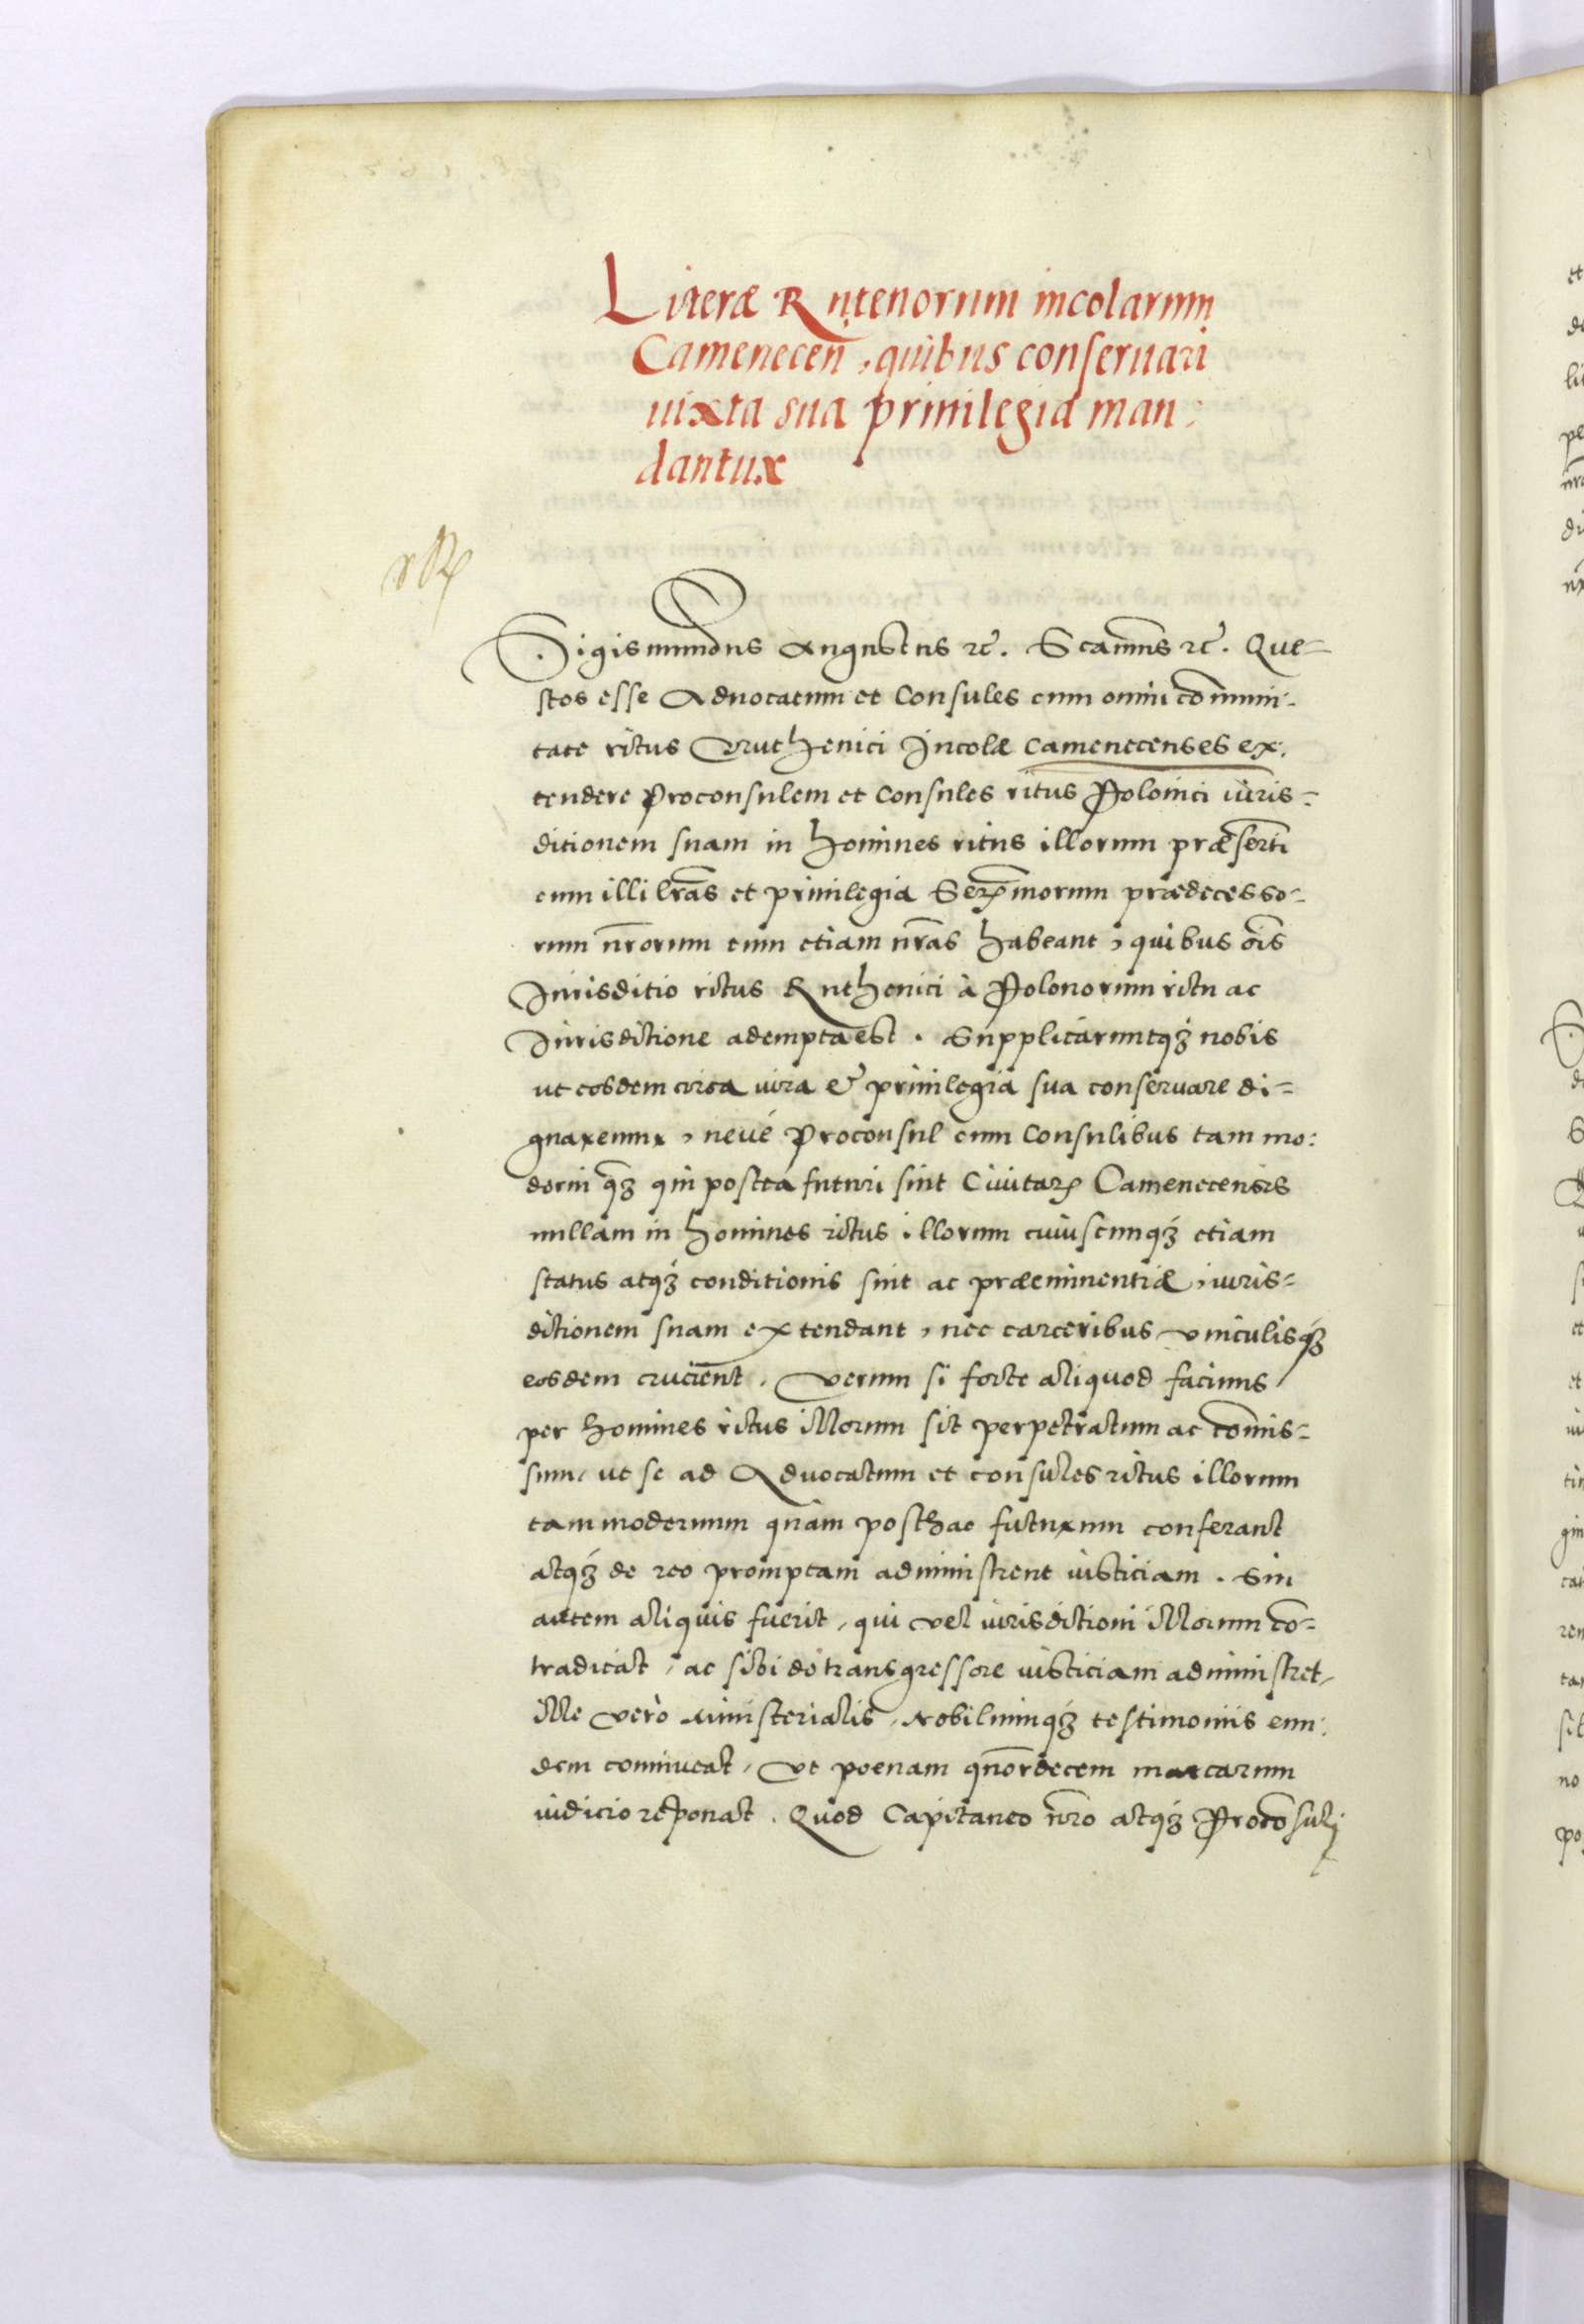 Literæ Rutenorum incolarum
Camenecen̄, quibus conseruari
iuxta sua priuilegia man:
dantur
Sigismundus Augustus ꝛc̄. Scāmus ꝛc̄. Que-
stos esse Aduocatum et Consules cum omni cōmuni-
tate ritus Vruthenici Incolæ Camenecenses ex-
tendere Proconsulem et Consules ritus Polonici iuris-
ditionem suam in homines ritus illorum præsertī
cum illi lr̄as et priuilegia Serꝫmorum prædecesso-
rum nr̄orum cum etiam nr̄as habeant, quibus oīs
Jurisditio ritus Ruthenici à Polonorum ritu ac
Jurisditione adempta est. Supplicaruntqꝫ nobis
ut eosdem circa iura & priuilegia sua conseruare di-
gnaremur, neué Proconsul cum Consulibus tam mo:
derni qꝫ qui postea futuri sint Ciuitatꝫ Camenecensis
nullam in homines ritus illorum cuiuscunqꝫ etiam
status atqꝫ conditionis sint ac præeminentiæ, iuris-
ditionem suam extendant, nec carceribus vinculisqꝫ
eosdem crucient. Verum si forte aliquod facinus
per homines ritus illorum sit perpetratum ac cōmis-
sum, ut se ad Aduocatum et consules ritus illorum
tam modernum quàm posthac futurum conferant
atqꝫ de reo promptam administrent iusticiam. Sin
autem aliquis fuerit, qui vel iurisdictioni illorum cō-
tradicat, ac sibi de transgressore iusticiam administret,
ille verò ministerialis, Nobiliumqꝫ testimoniis eun:
dem conniueat, Vt poenam qn̄ordecem marcarum
iudicio reponat. Quod Capitaneo nr̄o atqꝫ Procōsuli